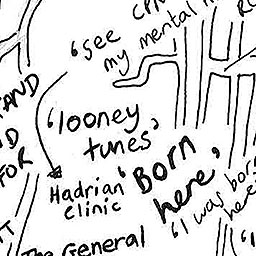 'see
my mental
'looney
tunes'
Hadrian
clinic
'Born
here,
'I was born
here
FOR
The General